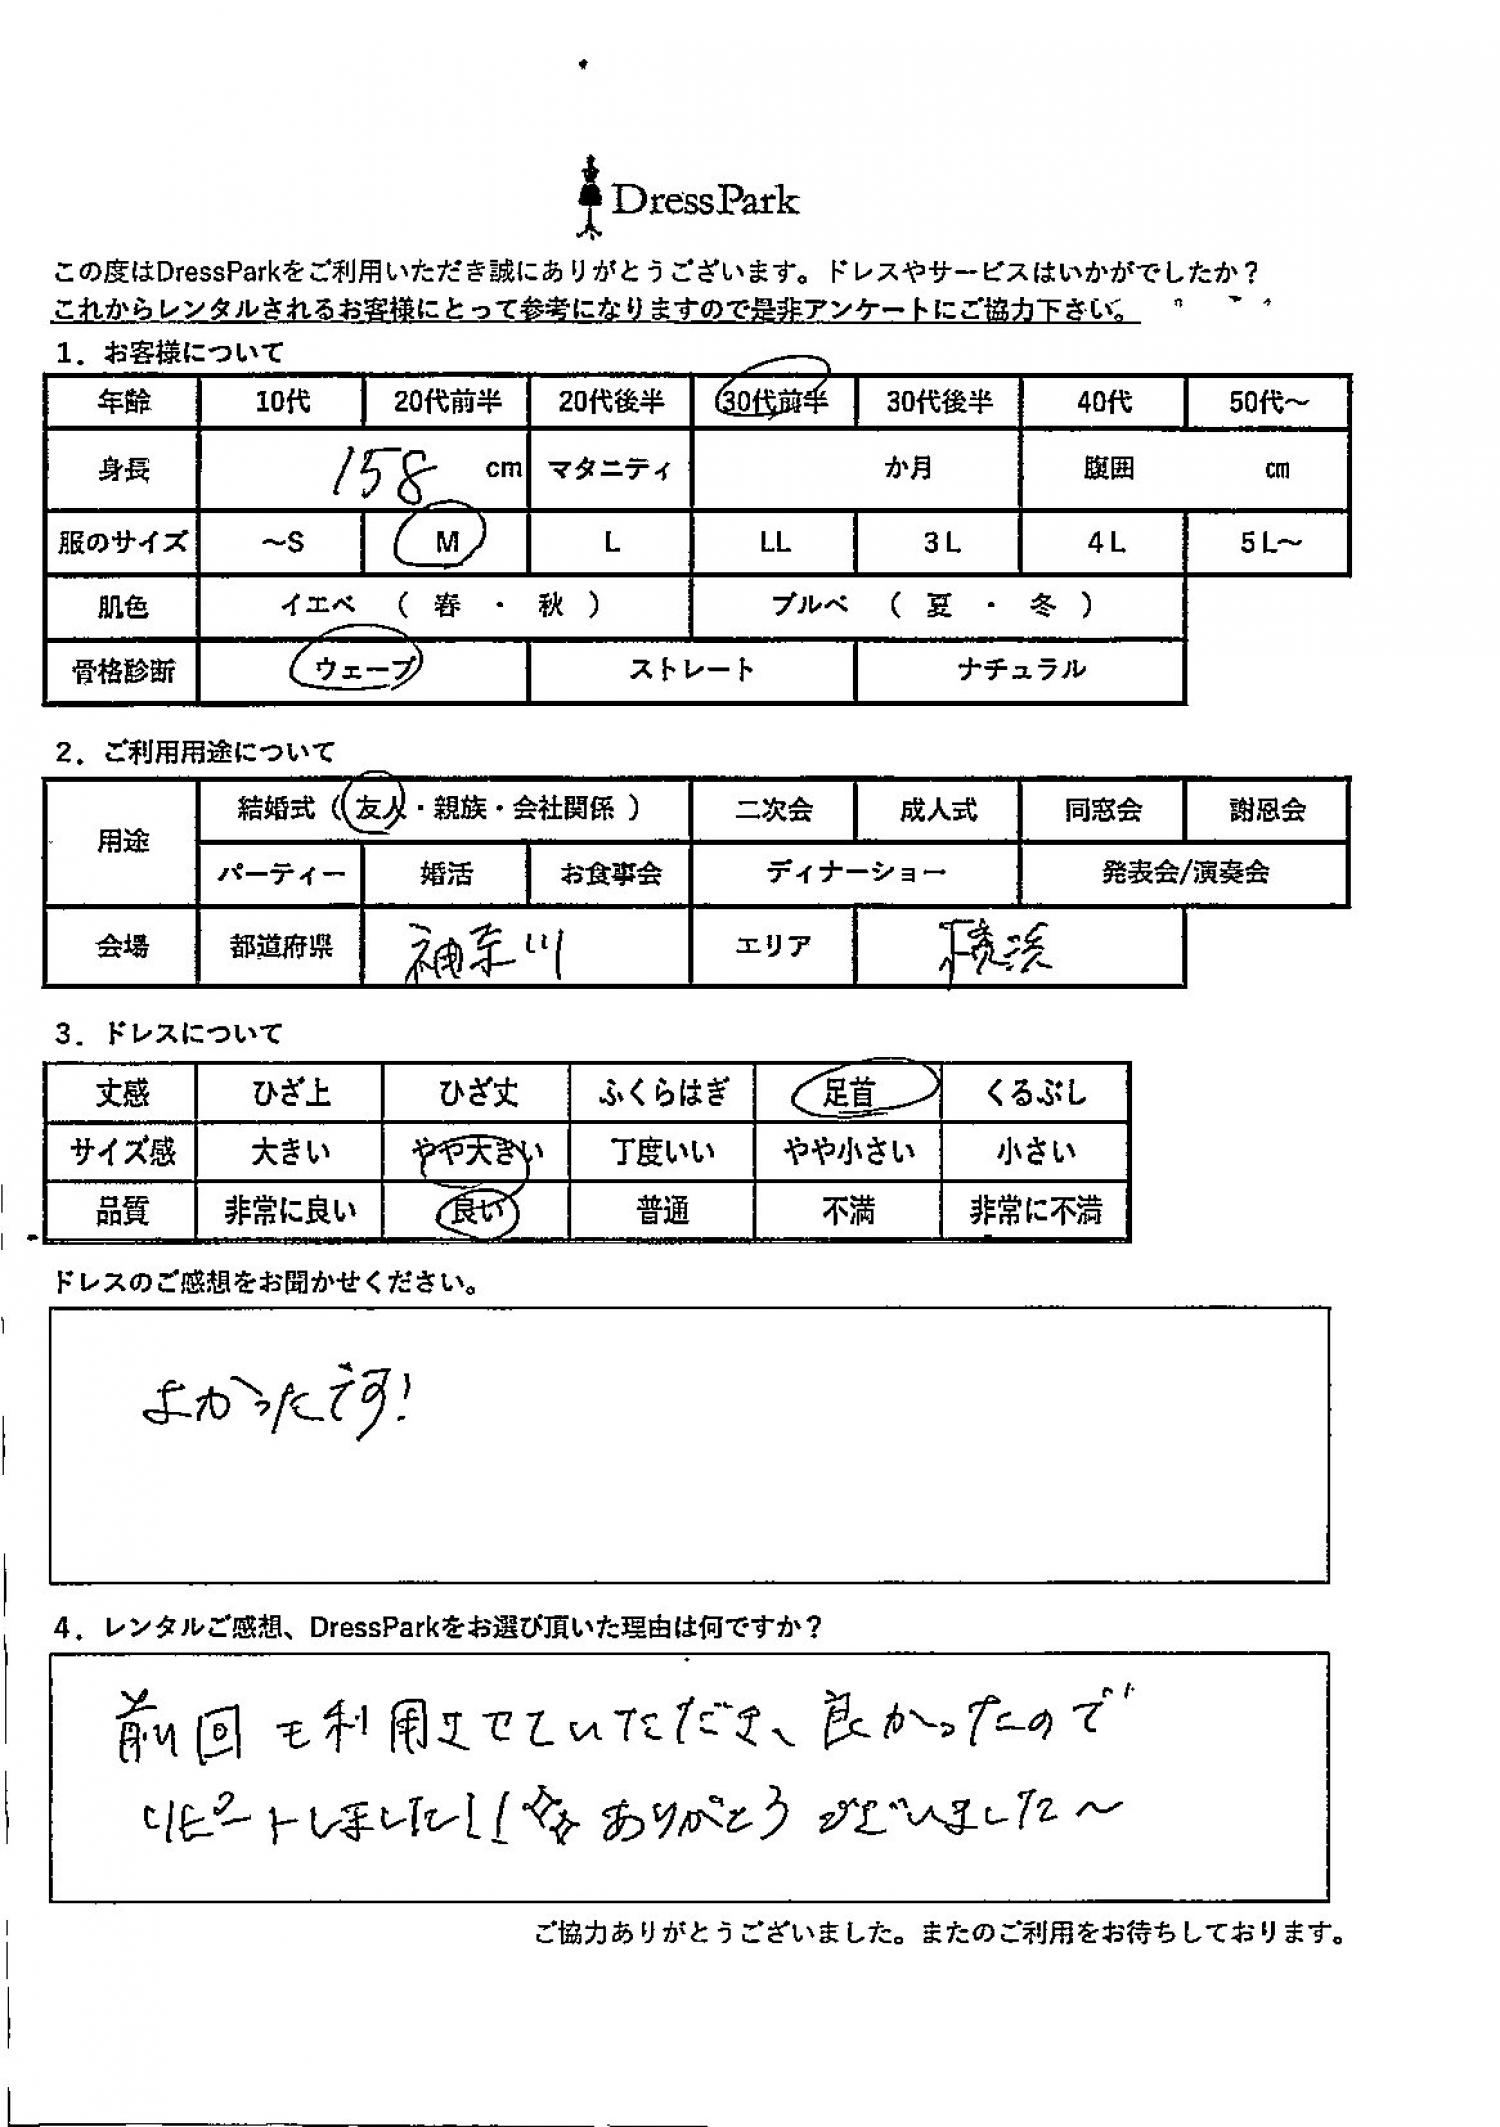 DressPark
この度はDressParkをご利用いただき誠にありがとうございます。ドレスやサービスはいかがでしたか？
これからレンタルされるお客様にとって参考になりますので是非アンケートにご協力下さい。
1．お客様について
年齢 10代 20代前半 20代後半 30代前半 30代後半 40代 50代～
身長 158 cm マタニティ か月 腹囲 cm
服のサイズ ～S M L LL 3L 4L 5L～
肌色 イエベ （ 春 ・ 秋 ） ブルベ （ 夏 ・ 冬 ）
骨格診断 ウェーブ ストレート ナチュラル
2．ご利用用途について
用途 結婚式（ 友人・親族・会社関係 ） 二次会 成人式 同窓会 謝恩会
パーティー 婚活 お食事会 ディナーショー 発表会/演奏会
会場 都道府県 神奈川 エリア 横浜
3．ドレスについて
丈感 ひざ上 ひざ丈 ふくらはぎ 足首 くるぶし
サイズ感 大きい やや大きい 丁度いい やや小さい 小さい
品質 非常に良い 良い 普通 不満 非常に不満
ドレスのご感想をお聞かせください。
よかったです!
4．レンタルご感想、DressParkをお選び頂いた理由は何ですか？
前回も利用させていただき、良かったので
リピートしました!! ありがとうございました～
ご協力ありがとうございました。またのご利用をお待ちしております。